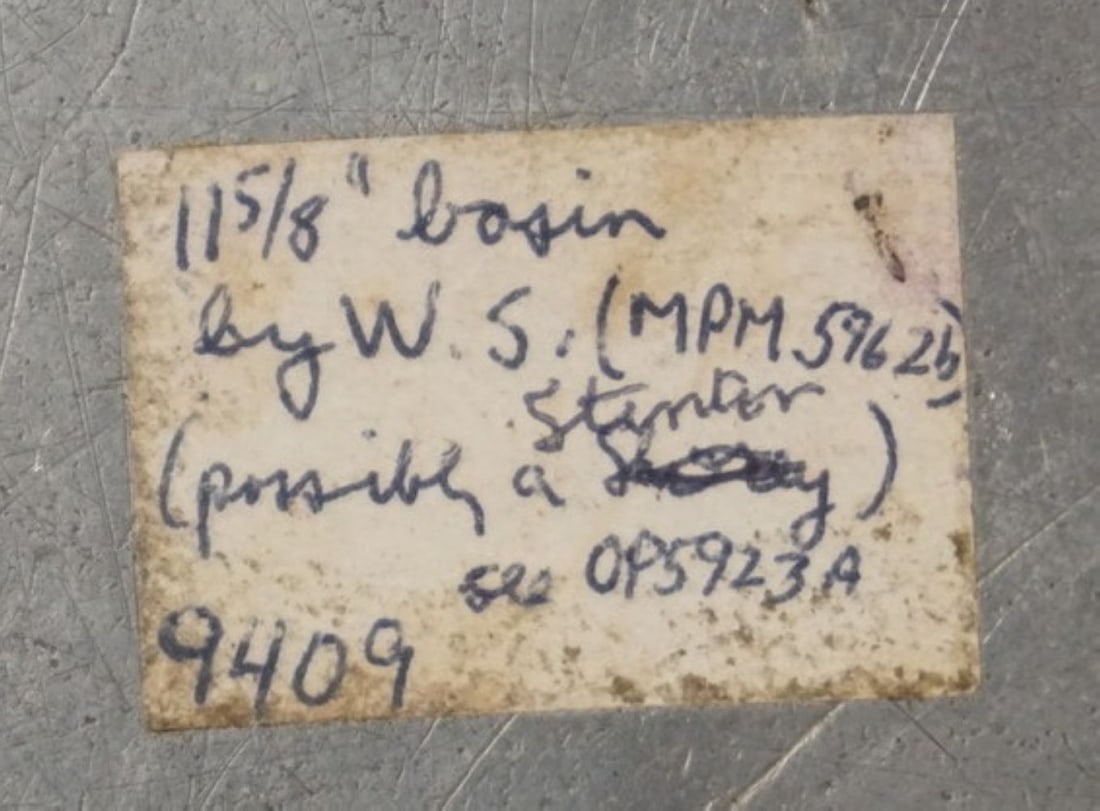 11 5/8" basin
by W. S. (MPM 5962b)
Stentor
(possibly a )
see OP5923A
9409